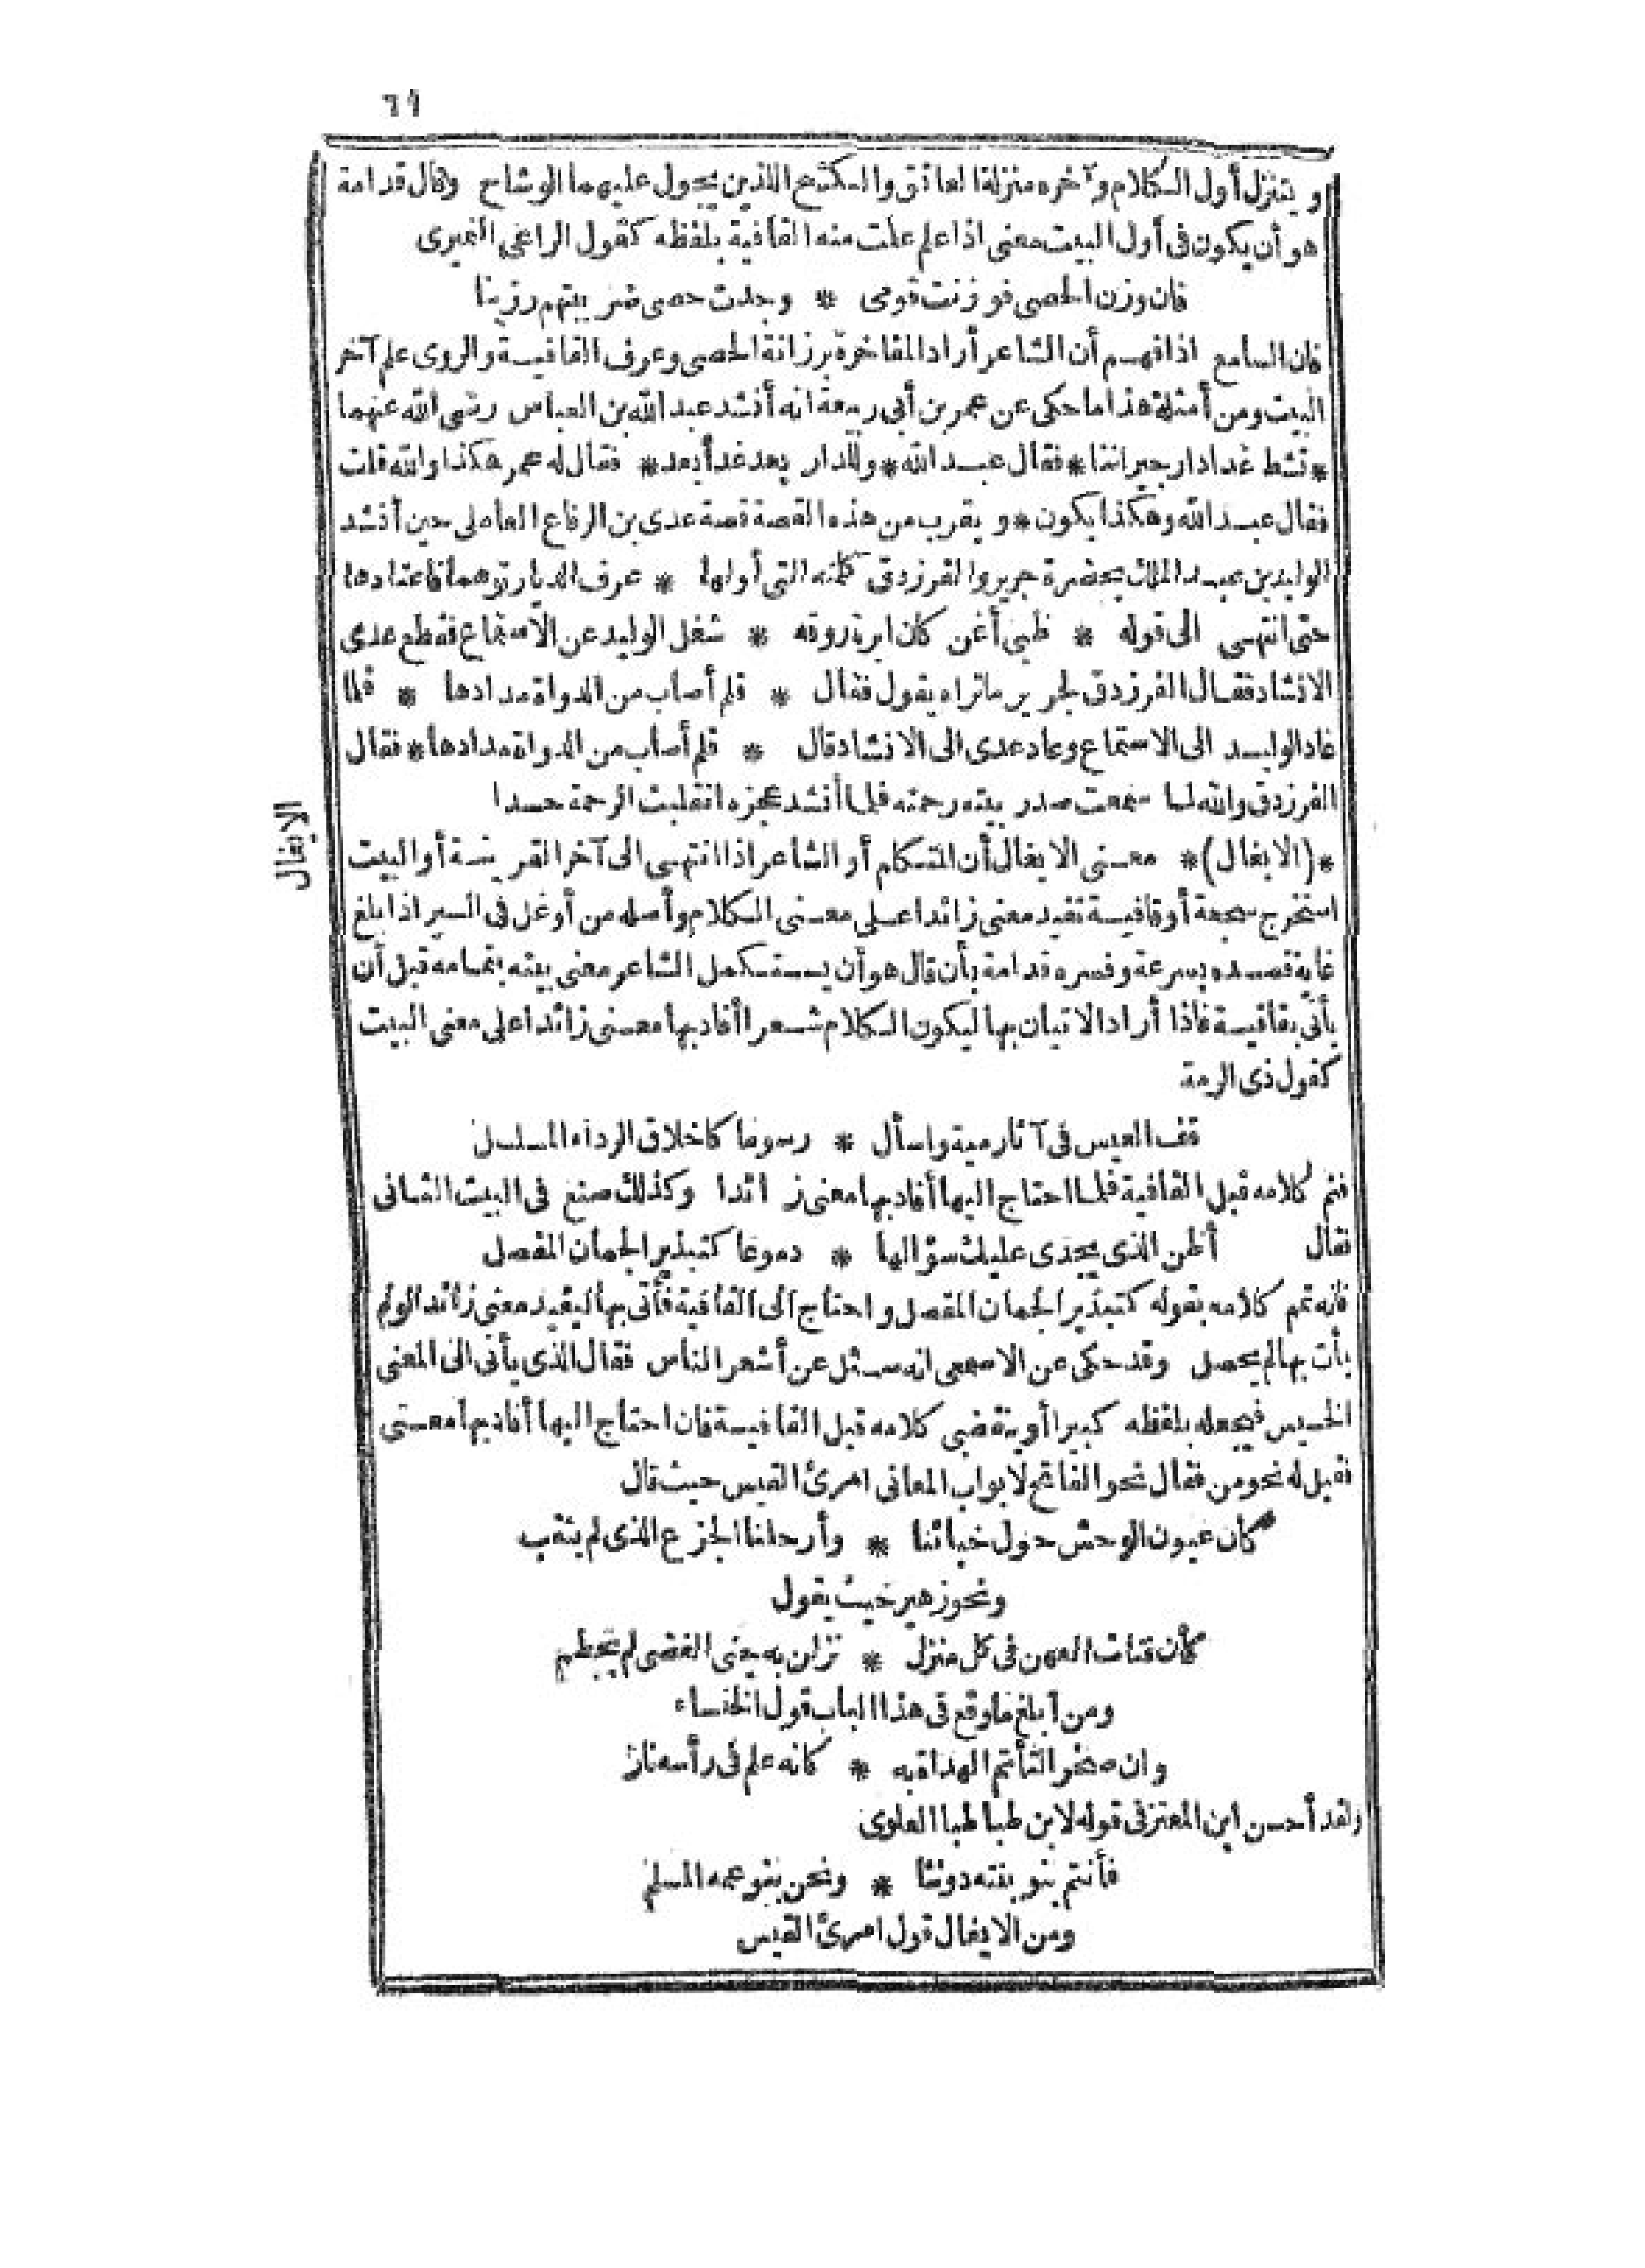 ٦٩
ويتنزل أول الكلام وآخره منزلة العاتق والكشح اللذين يجول عليهما الوشاح وقال قدامة
هو أن يكون فى أول البيت معنى اذا علم علمت منه القافية بلفظه كقول الراعى النميرى
فان وزن الحصى فوزنت قومى * وجدت حصى ضريبتهم رزينا
فان السامع اذا فهم أن الشاعر أراد المفاخرة برزانة الحصى وعرف القافية والروى علم آخر
البيت ومن أمثلة هذا ما حكى عن عمر بن أبى ربيعة انه أنشد عبد الله بن العباس رضى الله عنهما
* تشط غدا دار جيراننا * فقال عبد الله * وللدار بعد غد أبعد * فقال له عمر هكذا والله قلت
فقال عبد الله وهكذا يكون * ويقرب من هذه القصة قصة عدى بن الرقاع العاملى حين أنشد
الوليد بن عبد الملك بحضرة جرير والفرزدق كلمته التى أولها * عرف الديار توهما فاعتادها
حتى انتهى الى قوله * ظبى أغن كان ابرة روقه * شغل الوليد عن الاستماع فقطع عدى
الانشاد فقال الفرزدق لجرير ما تراه يقول فقال * قلم أصاب من الدواة مدادها * فلما
عاد الوليد الى الاستماع وعاد عدى الى الانشاد قال * قلم أصاب من الدواة مدادها * فقال
الفرزدق والله لما سمعت صدر بيته رحمته فلما أنشد عجزه انقلبت الرحمة حسدا
الايغال
*(الايغال)* معنى الايغال أن المتكلم أو الشاعر اذا انتهى الى آخر القرينة أو البيت
استخرج سجعة أو قافية تفيد معنى زائدا على معنى الكلام وأصله من أوغل فى السير اذا بلغ
غاية قصده بسرعة وفسره قدامة بأن قال هو أن يستكمل الشاعر معنى بيته بتمامه قبل أن
يأتى بقافيته فاذا أراد الاتيان بها ليكون الكلام شعرا أفاد بها معنى زائدا على معنى البيت
كقول ذى الرمة
قف العيس فى آثار مية واسأل * رسوما كاخلاق الرداء المسلسل
فتم كلامه قبل القافية فلما احتاج اليها أفاد بها معنى زائدا وكذلك صنع فى البيت الثانى
فقال أظن الذى يجدى عليك سؤالها * دموعا كتبذير الجمان المفصل
فانه تم كلامه بقوله كتبذير الجمان المفصل واحتاج الى القافية فأتى بها ليفيد معنى زائدا لو لم
يأت بها لم يحصل وقد حكى عن الاصمعى انه سئل عن أشعر الناس فقال الذى يأتى الى المعنى
الخسيس فيجعله بلفظه كبيرا أو ينقضى كلامه قبل القافية فان احتاج اليها أفاد بها معنى
فقيل له نحو من فقال نحو الفاتح لابواب المعانى امرئ القيس حيث قال
كأن عيون الوحش حول خبائنا * وأرحلنا الجزع الذى لم يثقب
ونحو زهير حيث يقول
كأن فتات العهن فى كل منزل * نزلن به حتى الغضى لم يحطم
ومن أبلغ ما وقع فى هذا الباب قول الخنساء
وان صخرا لتأتم الهداة به * كانه علم فى رأسه نار
ولقد أحسن ابن المعتز فى قوله لابن طباطبا العلوى
فأنتم بنو بنته دوننا * ونحن بنو عمه المسلم
ومن الايغال قول امرئ القيس